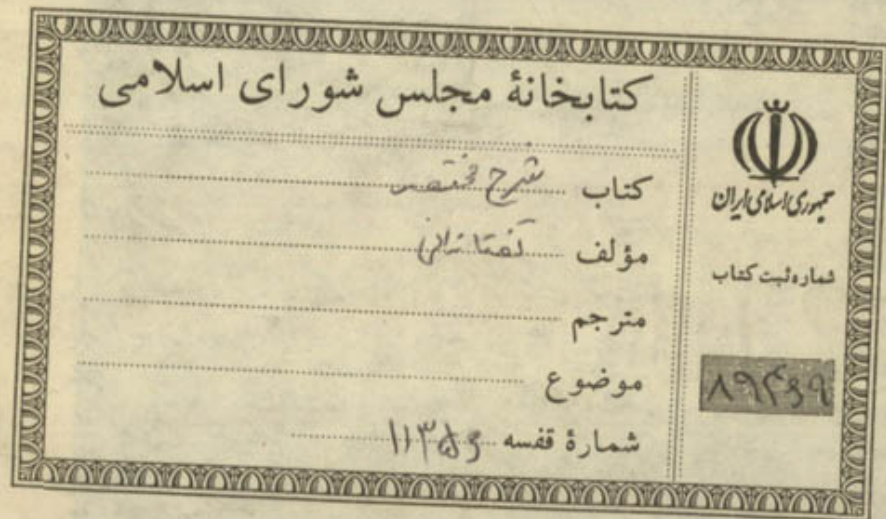 کتابخانهٔ مجلس شورای اسلامی
کتاب شرح مختصر
مؤلف تفتازانی
مترجم
موضوع
شمارهٔ قفسه ۱۱۳۵۶
جمهوری اسلامی ایران
شماره ثبت کتاب
۸۹۴۶۹